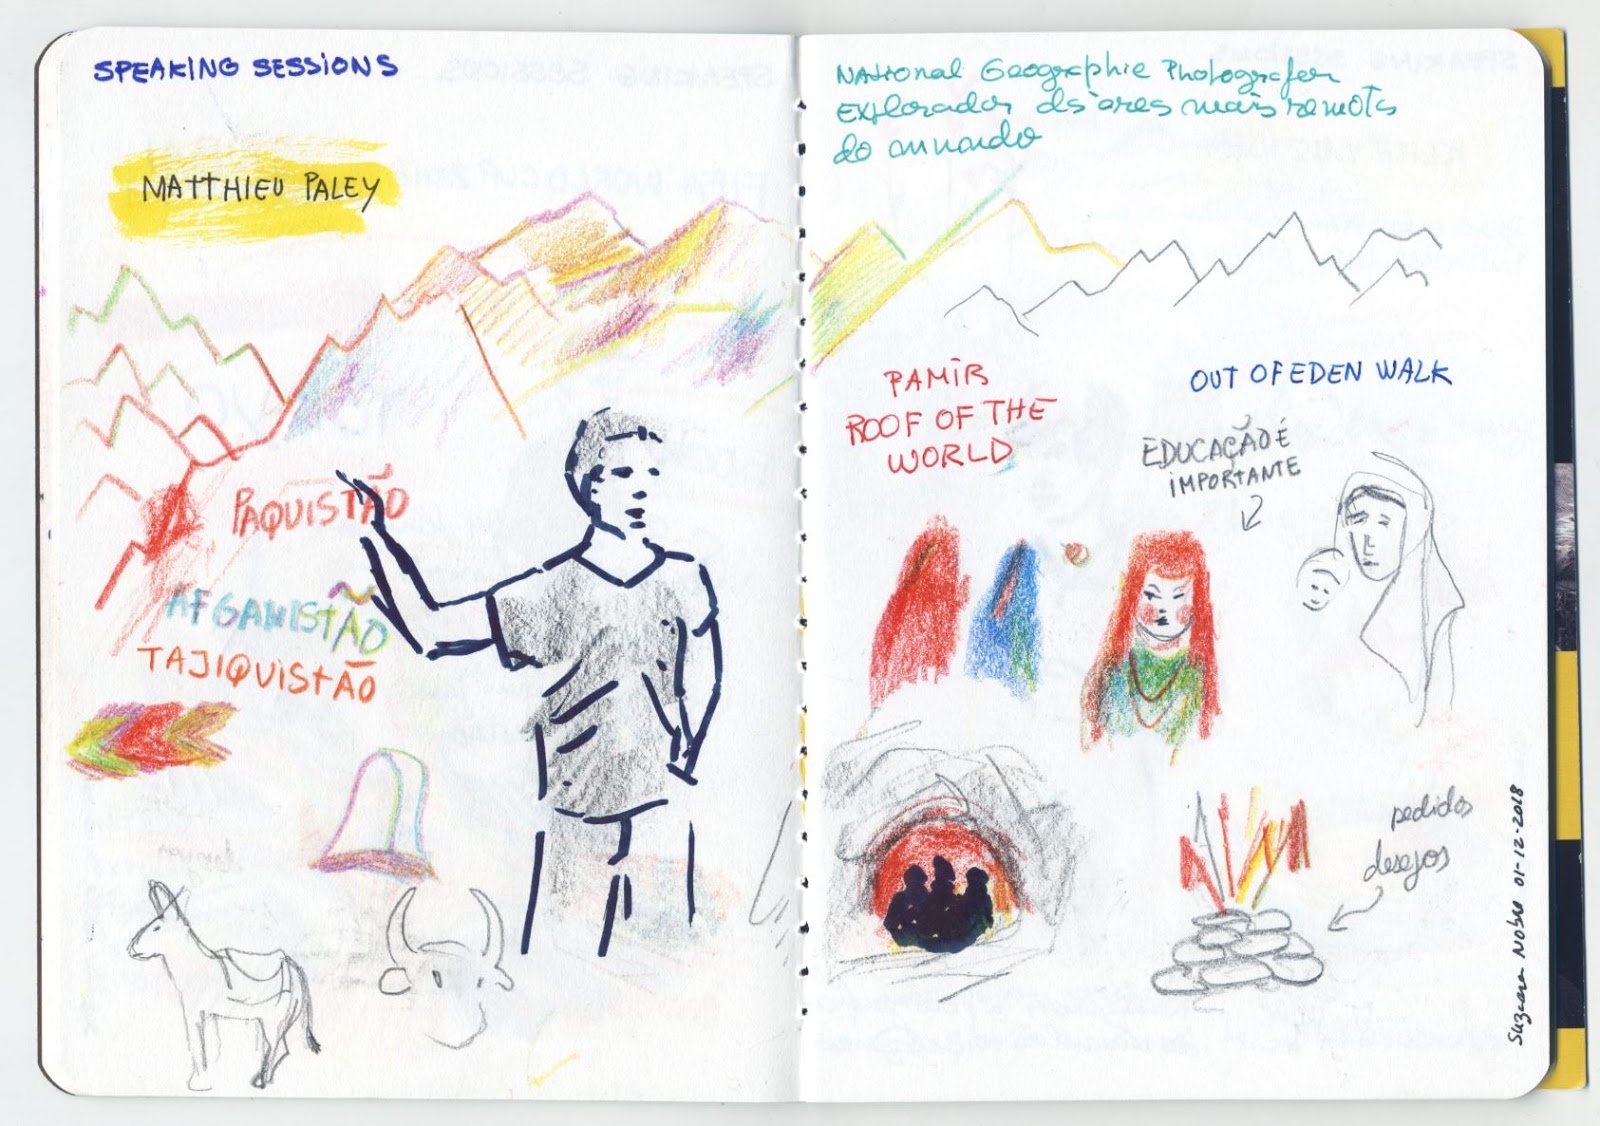 SPEAKING SESSIONS
MATTHIEU PALEY
PAQUISTÃO
AFGANISTÃO
TAJIQUISTÃO
National Geographic Photografer
Explorador das áreas mais remotas
do mundo
PAMIR
ROOF OF THE
WORLD
OUT OF EDEN WALK
EDUCAÇÃO É
IMPORTANTE
pedidos
desejos
Suzana Nobre 01-12-2018